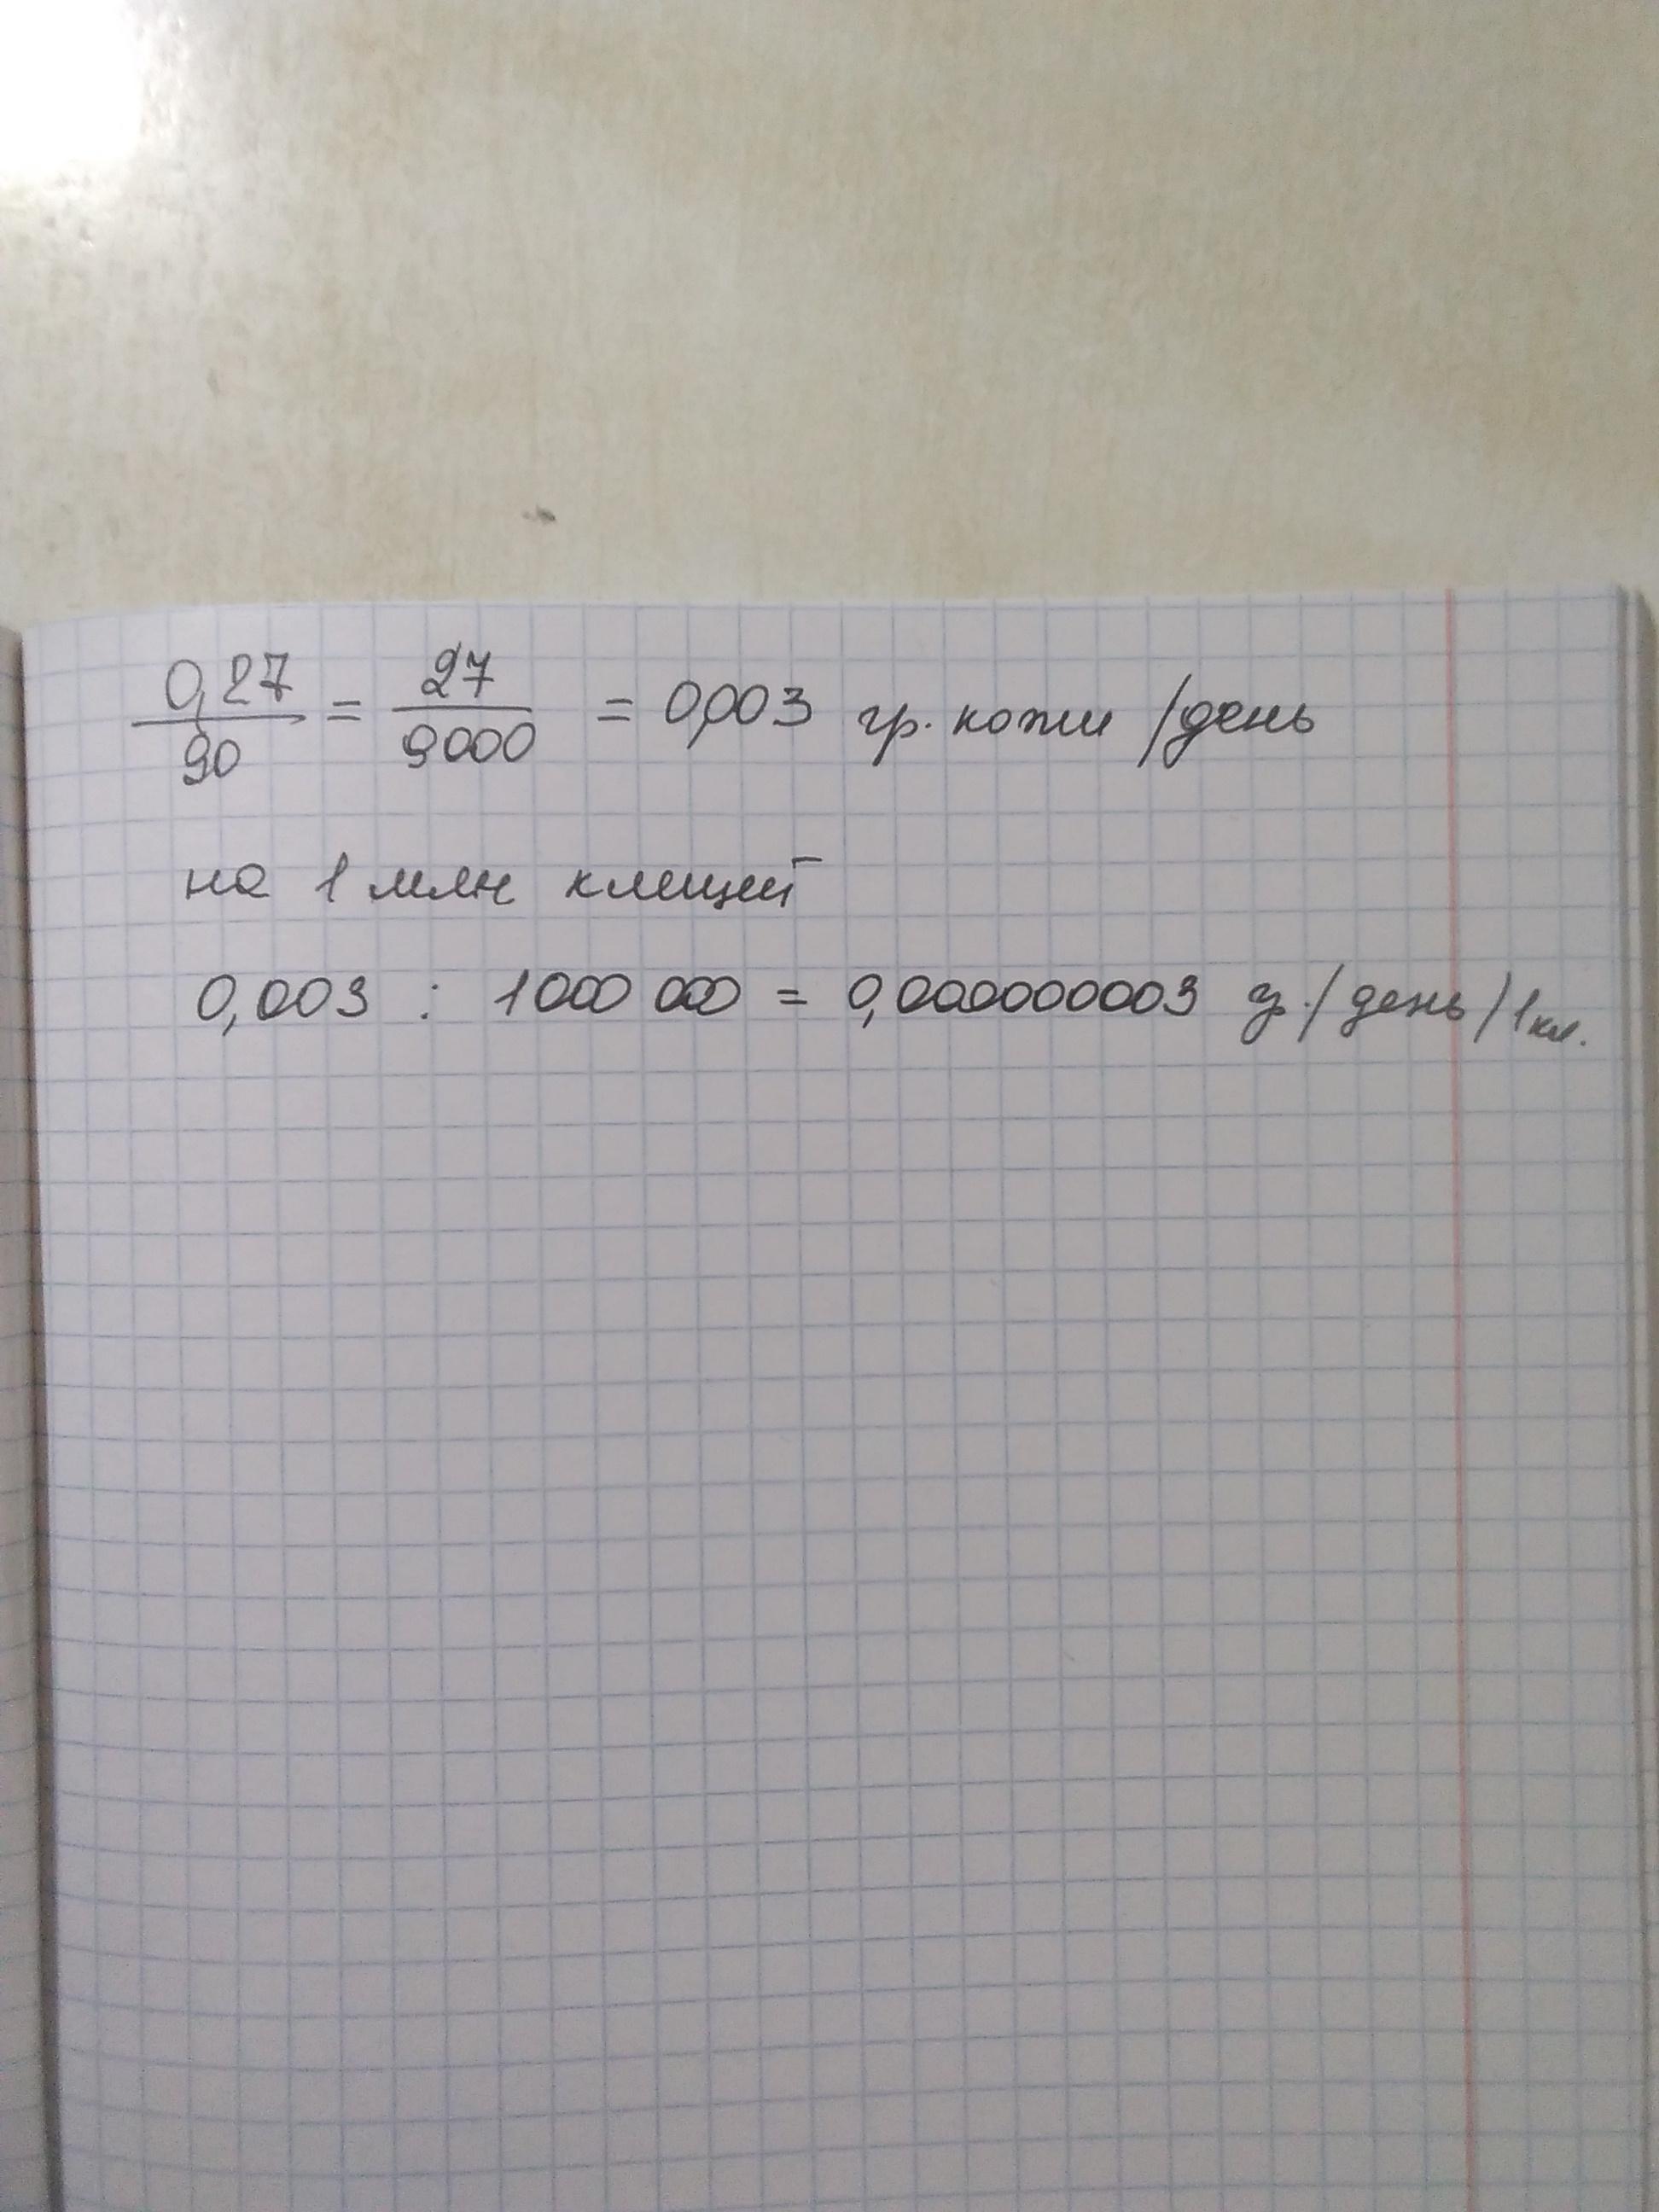 0,27/90 = 27/9000 = 0,003 гр. кожи /день
на 1 млн клещей
0,003 : 1000 000 = 0,000000003 гр./день/1кл.